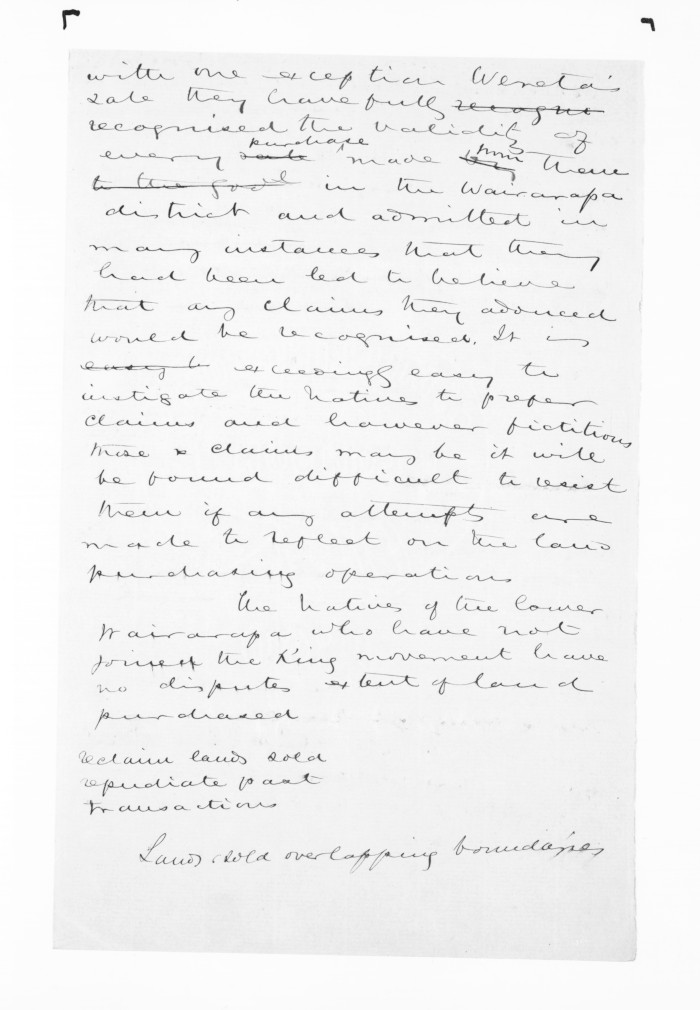 with one exception Wereta's
sale they have fully recogni
recognised the validity of
purchase from
every sale made by them
to the govt in the Wairarapa
district and admitted in
many instances that they
had been led to believe
that any claims they adduced
would be recognised. It is
easy to exceedingly easy to
instigate the Natives to prefer
claims and however fictitious
those claims may be it will
be found difficult to resist
them if any attempts are
made to reflect on the land
purchasing operations
The Natives of the lower
Wairarapa who have not
joined the King movement have
no disputes extent of land
purchased
reclaim lands sold
repudiate past
transactions
Lands sold overlapping boundaries